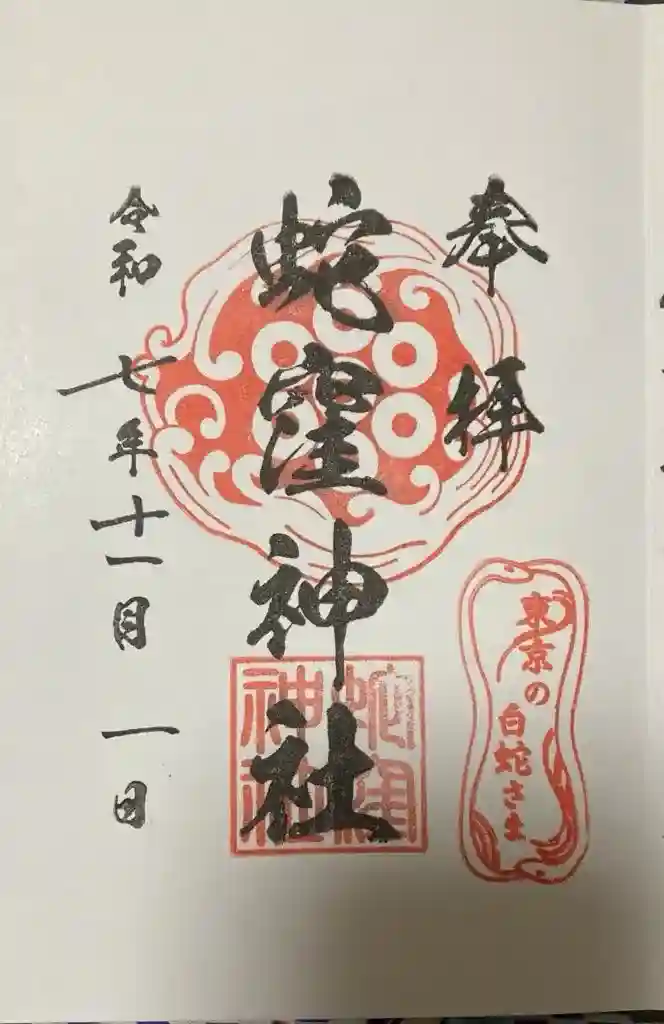 奉拝
蛇窪神社
令和七年十一月一日
東京の
白蛇さま